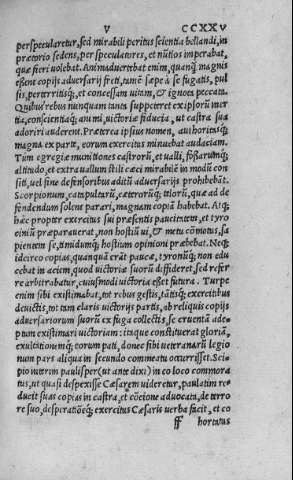 V CCXXV
perspecularetur, sed mirabili peritus scientia bellandi, in
prætorio sedens, per speculatores, et nūtios imperabat,
quæ fieri volebat. Animaduertebat enim, quanq̃ magnis
essent copijs aduersarij freti, tamē sæpe à se fugatis, pul
sis, perterritisq́;, et concessam uitam, & ignota peccata.
Quibus rebus nunquam tanta suppeteret ex ipsorū iner
tia, conscientiaq́; animi, uictoriæ fiducia, ut castra sua
adoriri auderent. Præterea ipsius nomen, authoritasq́;
magna ex parte, eorum exercitus minuebat audaciam.
Tum egregiæ munitiones castrorū, et ualli, fossarumq́;
altitudo, et extra uallum stili cæci mirabilē in modū con
siti, uel sine defensoribus aditū aduersarijs prohibebāt.
Scorpionum, catapultarū, cæterorūq́; telorū, quæ ad de
fendendum solent parari, magnam copiā habebat. Atq́;
hæc propter exercitus sui præsentis paucitatem, et tyro
ciniū præparauerat, non hostiū ui, & metu cōmotus, sa
pientem se, timidumq́; hostium opinioni præbebat. Neq́;
idcirco copias, quanquā erāt paucæ, tyronūq́; non edu
cebat in aciem, quod uictoriæ suorū diffideret, sed refer
re arbitrabatur, cuiusmodi uictoria esset futura. Turpe
enim sibi existimabat, tot rebus gestis, tātisq́; exercitibus
deuictis, tot tam claris uictorijs partis, ab reliquis copijs
aduersariorum suorū ex fuga collectis, se cruentā ade=
ptum existimari uictoriam: itaque constituerat gloriā,
exultationemq́; eorum pati, donec sibi ueteranarū legio
num pars aliqua in secundo commeatu occurrisset. Sci=
pio interim paulisper (ut ante dixi) in eo loco commora
tus, ut quasi despexisse Cæsarem uideretur, paulatim re=
ducit suas copias in castra, et cōcione aduocata, de terro
re suo, desperatiōeq́; exercitus Cæsaris uerba facit, et co
ff hortatus